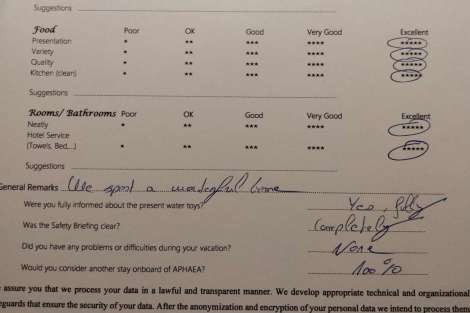 Suggestions
Food Poor OK Good Very Good Excellent
Presentation * ** *** **** *****
Variety * ** *** **** *****
Quality * ** *** **** *****
Kitchen (clean) * ** *** **** *****
Suggestions
Rooms/ Bathrooms Poor OK Good Very Good Excellent
Neatly * ** *** **** *****
Hotel Service
(Towels, Bed,...) * ** *** **** *****
Suggestions
General Remarks We spent a wonderful time
Were you fully informed about the present water toys? Yes, fully
Was the Safety Briefing clear? Completely
Did you have any problems or difficulties during your vacation? None
Would you consider another stay onboard of APHAEA? 100 %
assure you that we process your data in a lawful and transparent manner. We develop appropriate technical and organizational
eguards that ensure the security of your data. After the anonymization and encryption of your personal data we intend to process them